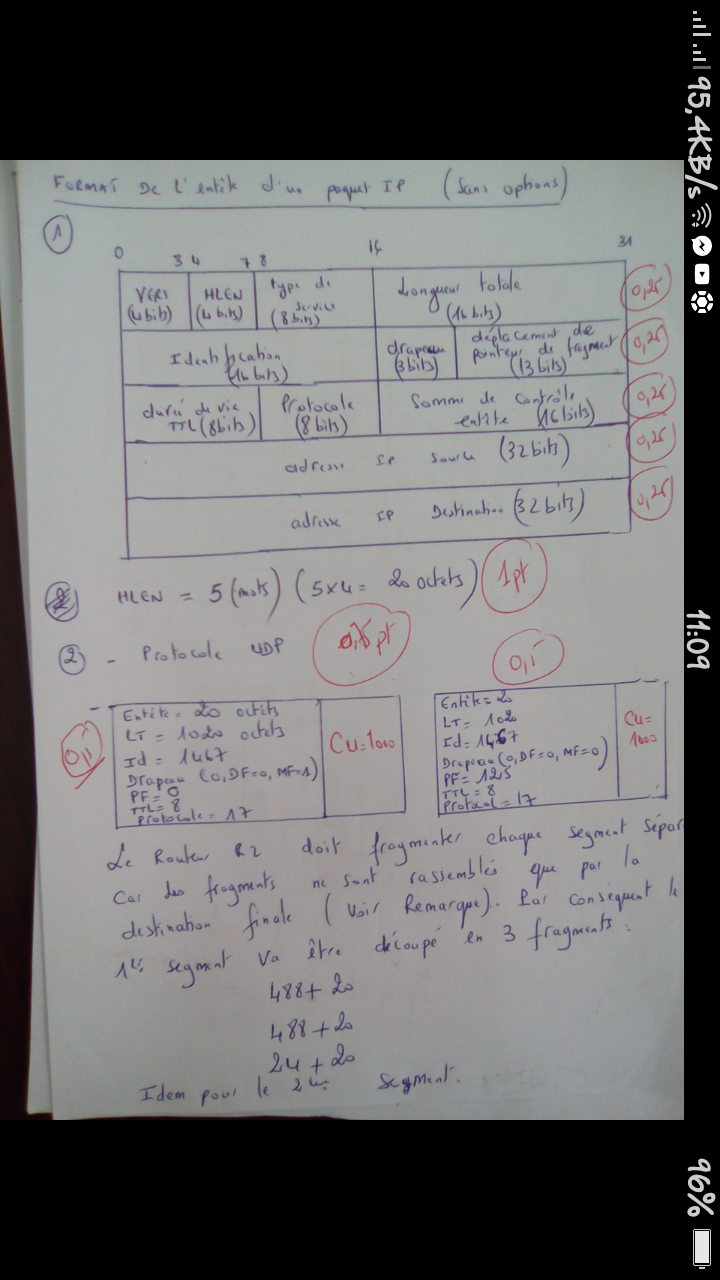 95,4KB/s
11:09
96%
FORMAT De l'entête d'un paquet IP (Sans options)
1
0 3 4 7 8 16 31
VERS (4bits) HLEN (4 bits) type de service (8bits) Longueur totale (16 bits) 0,25
Identification (16 bits) drapeau (3bits) déplacement de pointeur de fragment (13 bits) 0,25
durée de vie TTL (8bits) Protocole (8 bits) Somme de contrôle entête (16 bits) 0,25
adresse IP Source (32 bits) 0,25
adresse IP Destination (32 bits) 0,25
HLEN = 5 (mots) (5x4 = 20 octets) 1pt
2 - Protocole UDP pt
0,5
0,5
Entête = 20 octets
LT = 1020 octets
Id = 1467
Drapeau (0, DF=0, MF=1)
PF = 0
TTL = 8
Protocole = 17
CU=1000
Entête = 20
LT = 1020
Id = 1467
Drapeau (0, DF=0, MF=0)
PF = 125
TTL = 8
Protocol = 17
CU=
1000
Le Routeur R2 doit fragmenter chaque segment sépar
Car les fragments ne sont rassemblés que par la
destination finale (Voir Remarque). Par conséquent le
1er segment va être découpé en 3 fragments :
488 + 20
488 + 20
24 + 20
Idem pour le 2ème segment.